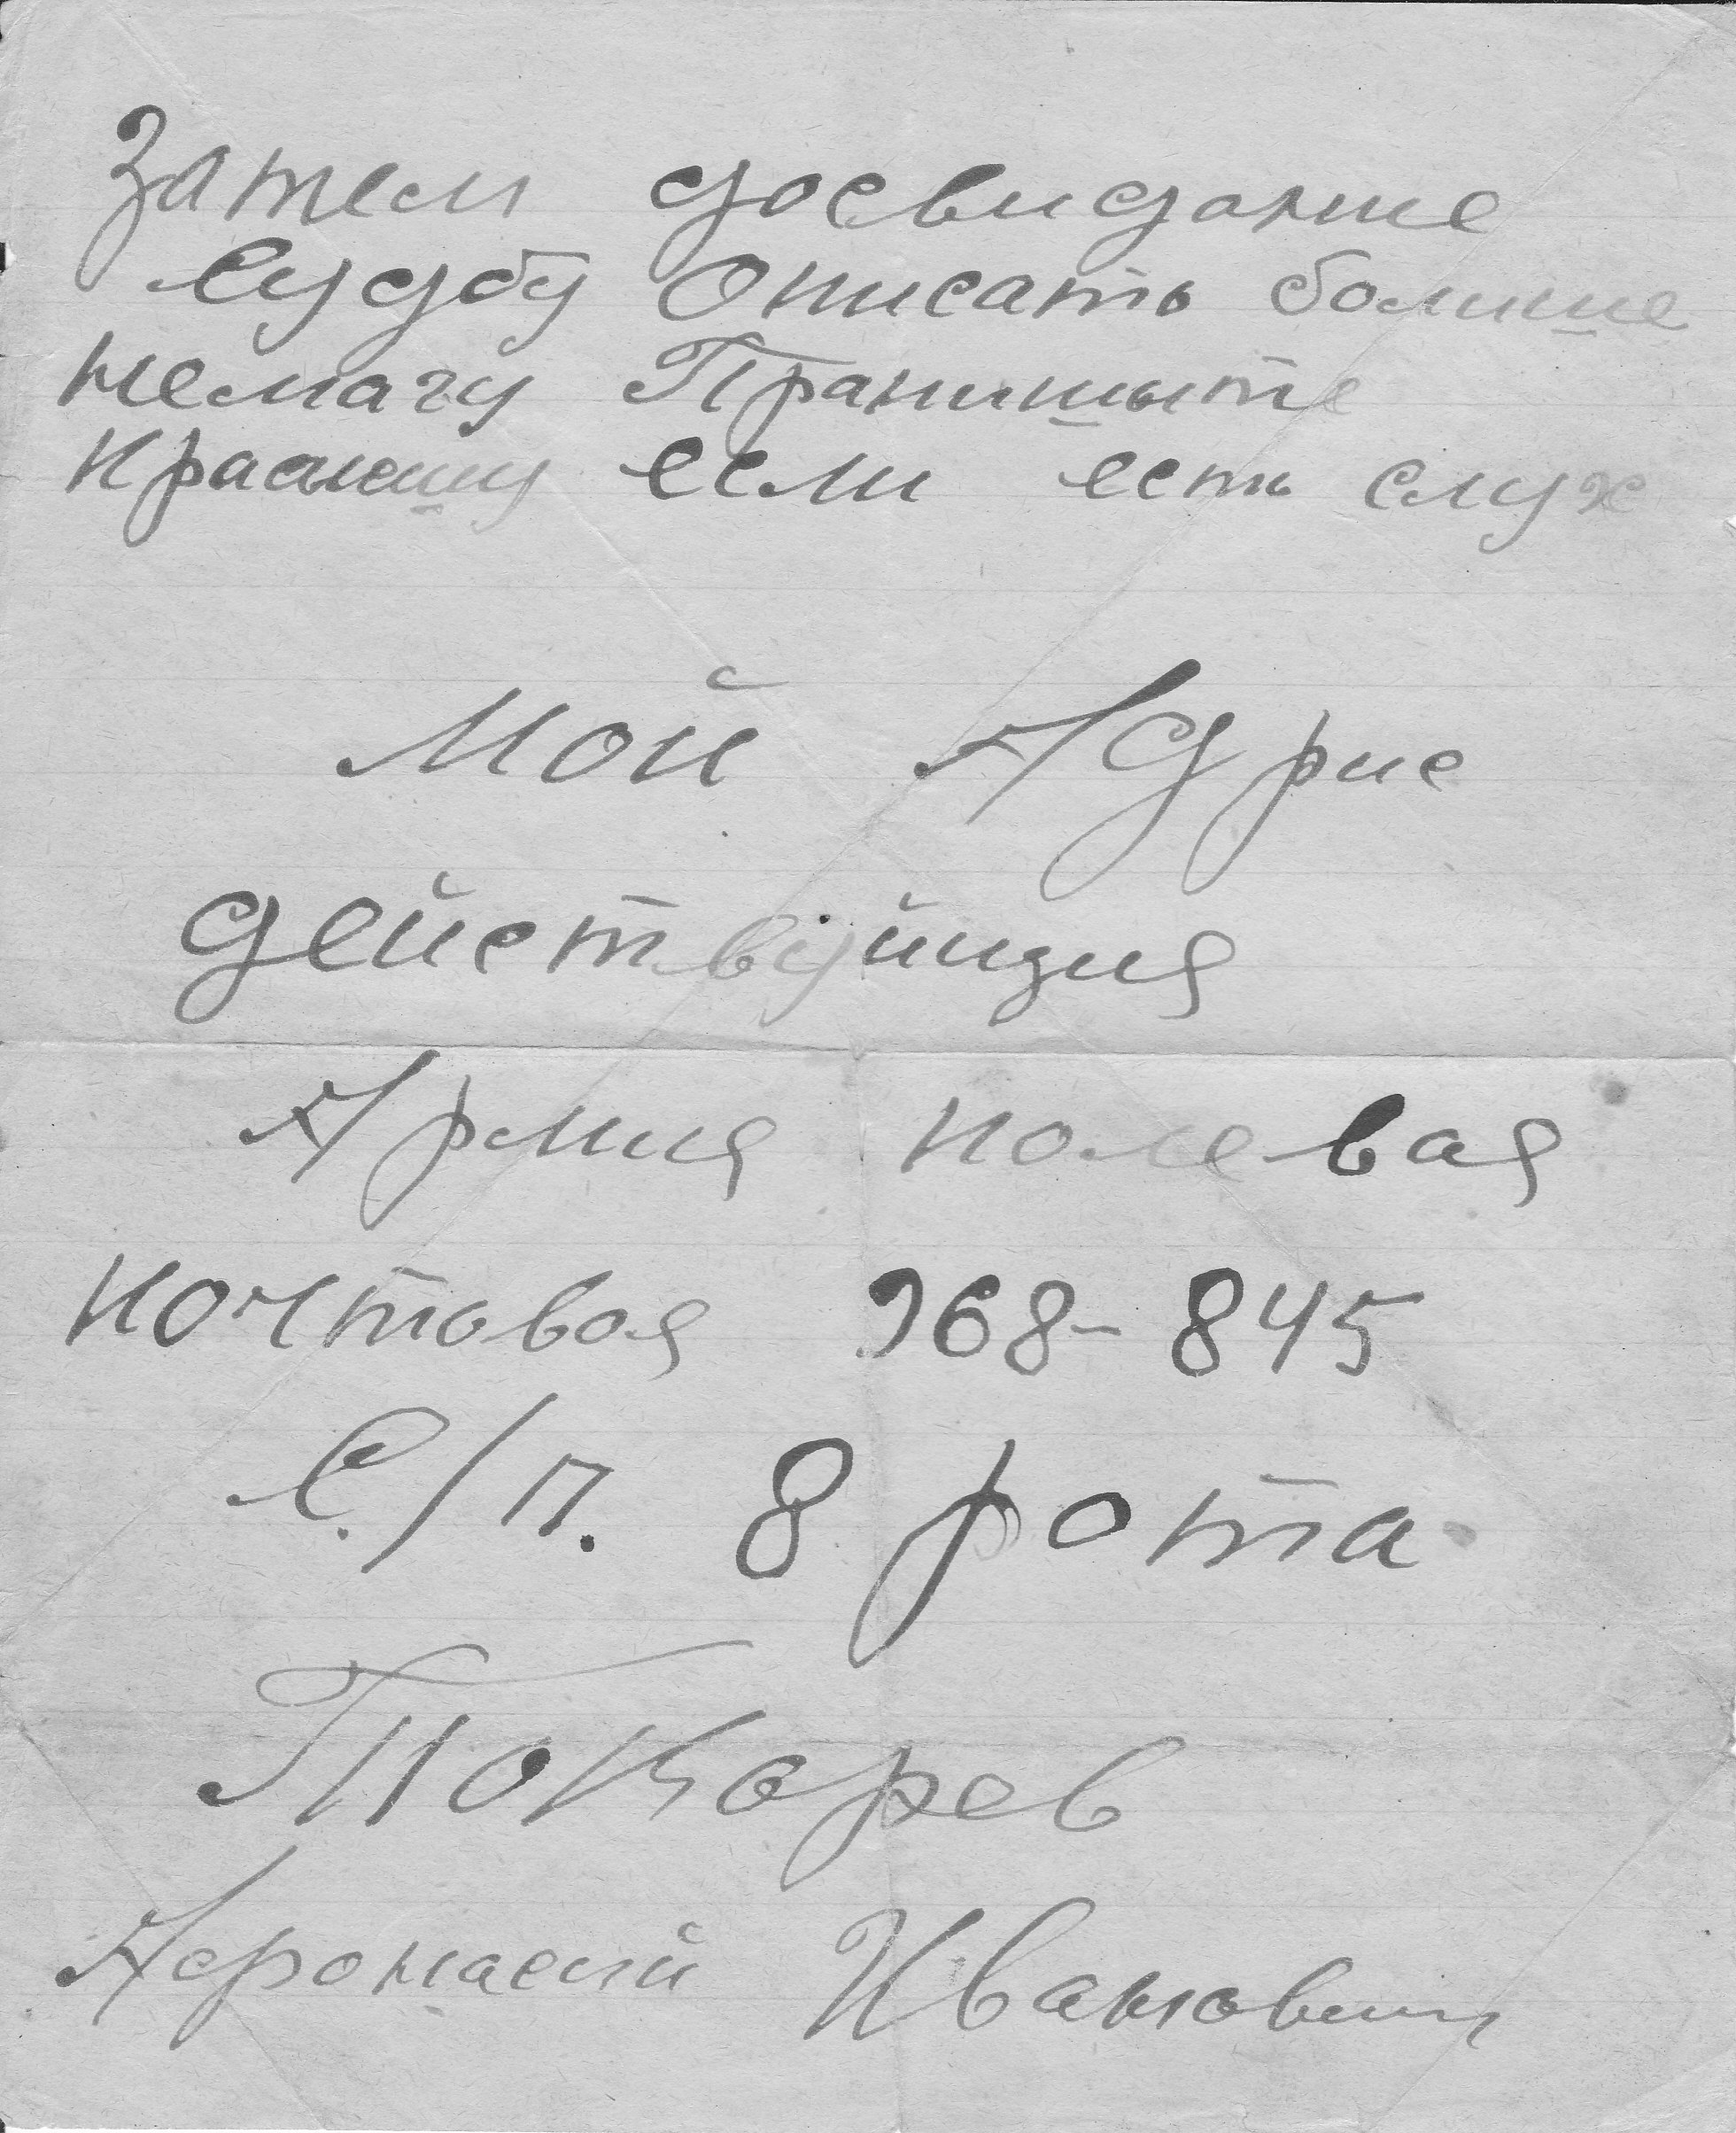 Затем досвидание
Судбу Описать болише
немагу Прапишыте
если есть слух
Мой Адрис
действуйищия
Армия полевая
почтовая 968-845
С./п. 8 рота
Токорев
Афонасий Иванович